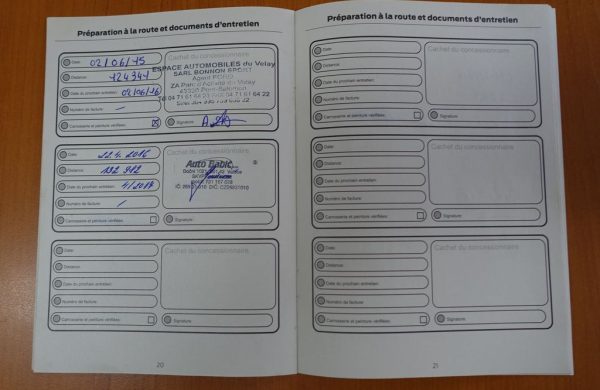 Préparation à la route et documents d'entretien
Date: 02/06/15
Distance: 124341
Date du prochain entretien: 02/06/16
Numéro de facture: -
Carrosserie et peinture vérifiées: X
Cachet du concessionnaire
ESPACE AUTOMOBILES du Velay
SARL BONNON SPORT
Agent FORD
ZA Parc d'Activité du Velay
Signature:
Date: 22.4. 2016
Distance: 132 912
Date du prochain entretien: 4/2017
Numéro de facture: /
Carrosserie et peinture vérifiées:
Cachet du concessionnaire
Auto Babić
Signature:
Date:
Distance:
Date du prochain entretien:
Numéro de facture:
Carrosserie et peinture vérifiées:
Cachet du concessionnaire
Signature:
20
Préparation à la route et documents d'entretien
Date:
Distance:
Date du prochain entretien:
Numéro de facture:
Carrosserie et peinture vérifiées:
Cachet du concessionnaire
Signature:
Date:
Distance:
Date du prochain entretien:
Numéro de facture:
Carrosserie et peinture vérifiées:
Cachet du concessionnaire
Signature:
Date:
Distance:
Date du prochain entretien:
Numéro de facture:
Carrosserie et peinture vérifiées:
Cachet du concessionnaire
Signature:
21